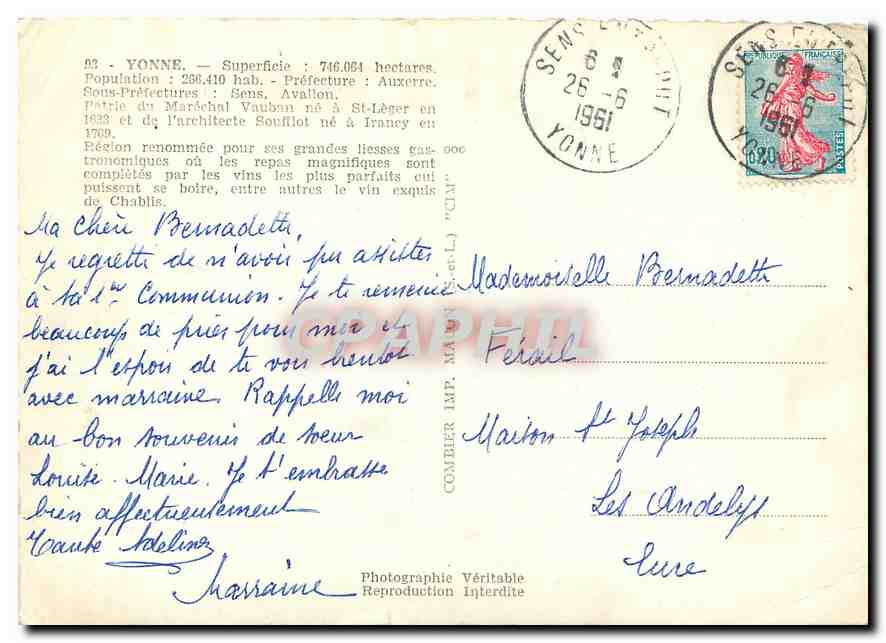 93 - YONNE. — Superficie : 746.064 hectares.
Population : 266.410 hab. - Préfecture : Auxerre.
Sous-Préfectures : Sens, Avallon.
Patrie du Maréchal Vauban né à St-Léger en
1633 et de l'architecte Soufflot né à Irancy en
1709.
Région renommée pour ses grandes liesses gas-
tronomiques où les repas magnifiques sont
complétés par les vins les plus parfaits qui
puissent se boire, entre autres le vin exquis
de Chablis.
Ma chère Bernadette,
Je regrette de n'avoir pu assister
à ta 1ère Communion. Je te remercie
beaucoup de prier pour moi et
j'ai l'espoir de te voir bientôt
avec marraine. Rappelle moi
au bon souvenir de soeur
Louise-Marie. Je t'embrasse
bien affectueusement
Tante Adeline
Marraine
COMBIER IMP. MACON (S.-et-L.) "CIM"
CPAPHIL
SENS ENTREPOT
26 - 6
1961
YONNE
SENS ENTREPOT
26 - 6
1961
YONNE
REPUBLIQUE FRANÇAISE
0,20
POSTES
Mademoiselle Bernadette
Férail
Maison St Joseph
Les Andelys
Eure
Photographie Véritable
Reproduction Interdite